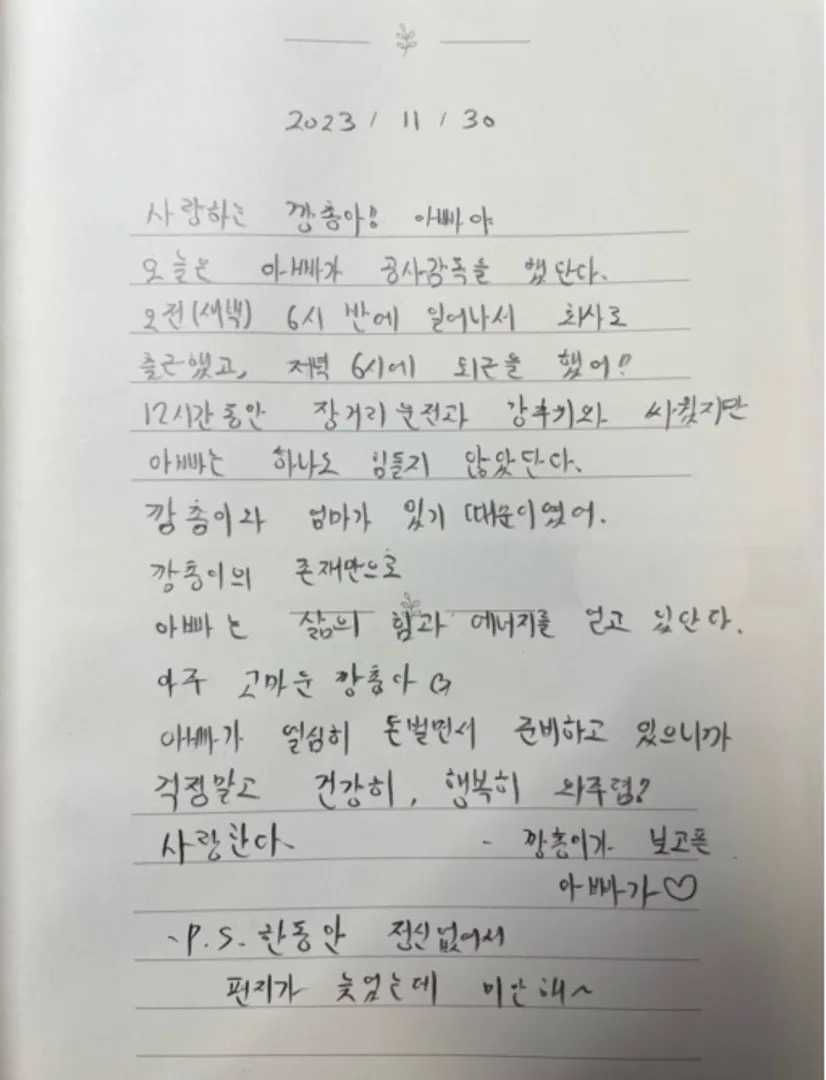 2023 / 11 / 30
사랑하는 깡총아! 아빠야
오늘은 아빠가 공사감독을 했단다.
오전(새벽) 6시 반에 일어나서 회사로
출근했고, 저녁 6시에 퇴근을 했어!
12시간 동안 장거리 운전과 강추위와 싸웠지만
아빠는 하나도 힘들지 않았단다.
깡총이와 엄마가 있기 때문이였어.
깡총이의 존재만으로
아빠는 삶의 힘과 에너지를 얻고 있단다.
아주 고마운 깡총아
아빠가 열심히 돈벌면서 준비하고 있으니까
걱정말고 건강히, 행복히 와주렴?
사랑한다. - 깡총이가 보고픈
아빠가♡
- P.S. 한동안 정신없어서
편지가 늦었는데 미안해~